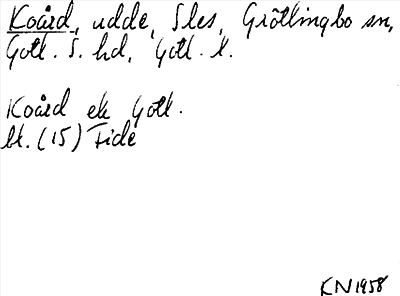 Koård, udde, Sles, Grötlingbo sn,
Gotl. S. hd, Gotl. l.
Koård ek Gotl.
bl. (15) Fide
KN 1958